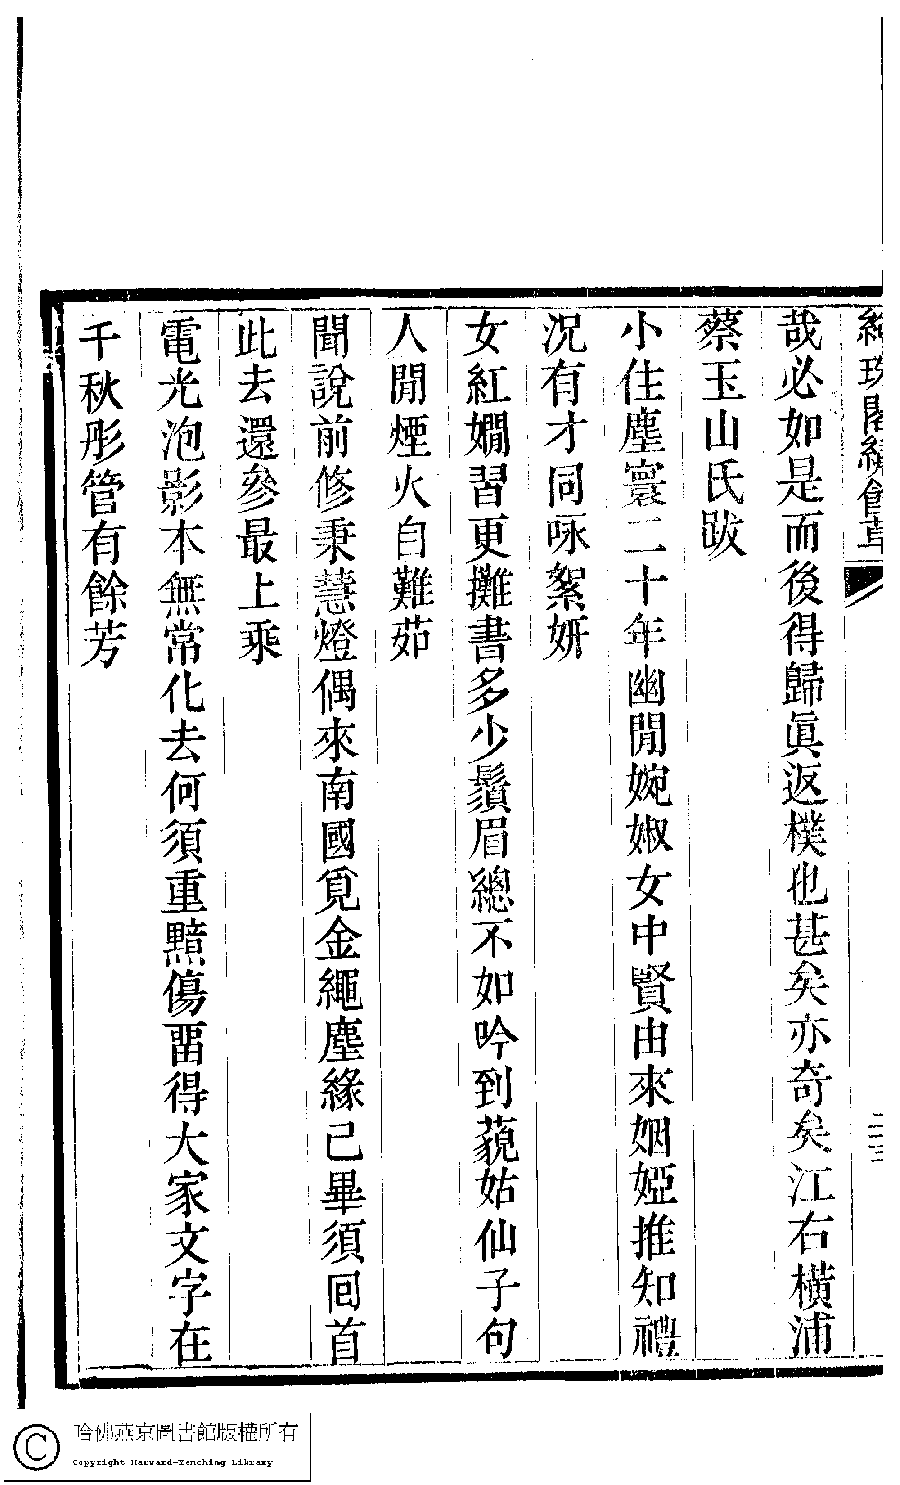 繡餘草
二十三
哉必如是而後得歸眞返樸也甚矣亦奇矣江右橫浦
蔡玉山氏跋
小住塵寰二十年幽閒婉嫩女中賢由來姻婭推知禮
況有才同咏絮妍
女紅嫺習更攤書多少鬚眉總不如吟到藐姑仙子句
人間煙火自難茹
聞說前修秉慧燈偶來南國覓金繩塵緣已畢須回首
此去還參最上乘
電光泡影本無常化去何須重黯傷畱得大家文字在
千秋彤管有餘芳
哈佛燕京圖書館版權所有
Copyright Harvard-Yenching Library